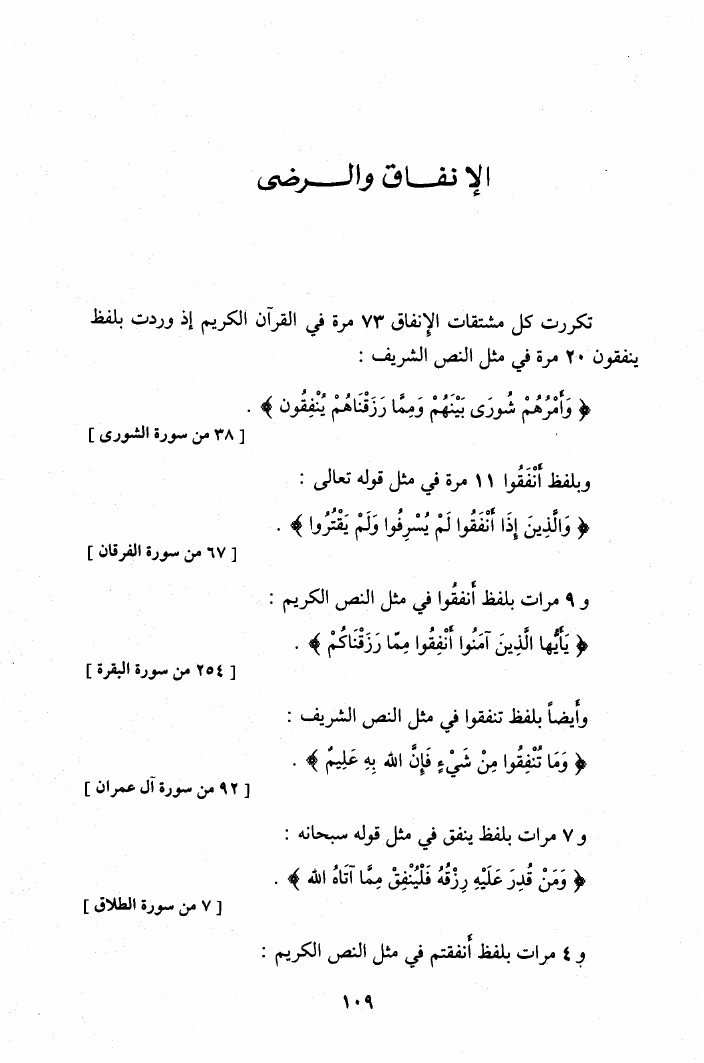 الإنفاق والرضى
تكررت كل مشتقات الإنفاق ٧٣ مرة في القرآن الكريم إذ وردت بلفظ
ينفقون ٢٠ مرة في مثل النص الشريف :
﴿ وَأَمْرُهُمْ شُورَى بَيْنَهُمْ وَمِمَّا رَزَقْنَاهُمْ يُنْفِقُون ﴾ .
[ ٣٨ من سورة الشورى ]
وبلفظ أَنْفَقُوا ١١ مرة في مثل قوله تعالى :
﴿ وَالَّذِينَ إِذَا أَنْفَقُوا لَمْ يُسْرِفُوا وَلَمْ يَقْتُرُوا ﴾ .
[ ٦٧ من سورة الفرقان ]
و ٩ مرات بلفظ أَنفقُوا في مثل النص الكريم :
﴿ يَأَيُّها الَّذِينَ آمَنُوا أَنْفِقُوا مِمّا رَزَقْنَاكُمْ ﴾ .
[ ٢٥٤ من سورة البقرة ]
وأَيضاً بلفظ تنفقوا في مثل النص الشريف :
﴿ وَمَا تُنْفِقُوا مِنْ شَيْءٍ فَإِنَّ الله بِهِ عَلِيمٌ ﴾ .
[ ٩٢ من سورة آل عمران ]
و ٧ مرات بلفظ ينفق في مثل قوله سبحانه :
﴿ وَمَنْ قُدِرَ عَلَيْهِ رِزْقُهُ فَلْيُنْفِقْ مِمَّا آتَاهُ الله ﴾ .
[ ٧ من سورة الطلاق ]
و ٤ مرات بلفظ أَنفقتم في مثل النص الكريم :
١٠٩